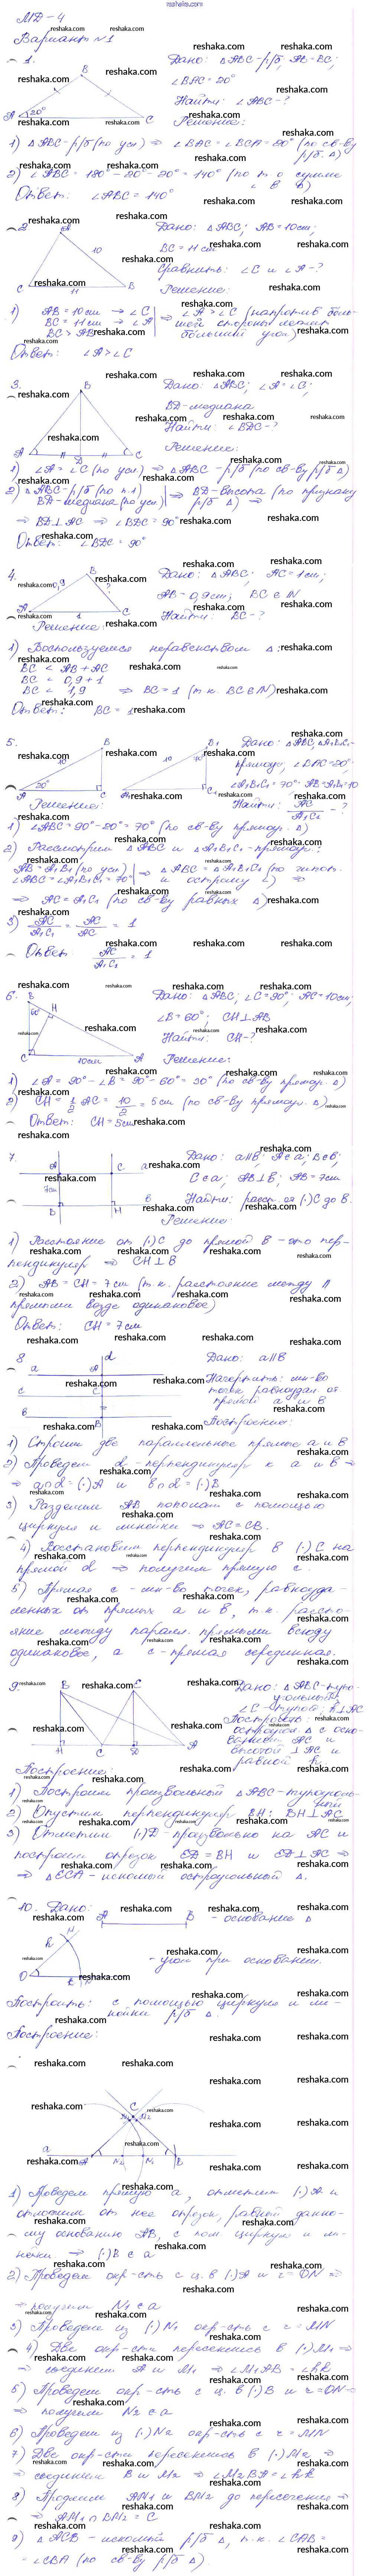 reshaka.com
МД-4
Вариант №1
1.
Дано: △ABC-р/б, AB=BC;
∠BAC = 20°
Найти: ∠ABC-?
Решение:
B
A
20°
C
1) △ABC-р/б (по усл) ⇒ ∠BAC = ∠BCA = 20° (по св-ву р/б. △)
2) ∠ABC = 180° - 20° - 20° = 140° (по т. о сумме ∠ в △)
Ответ: ∠ABC = 140°
2.
Дано: △ABC; AB=10см;
BC = 11 см
Сравнить: ∠C и ∠A-?
Решение:
A
10
C
11
B
1) AB = 10см → ∠C
BC = 11см → ∠A
BC > AB
⇒ ∠A > ∠C (напротив большей стороны лежит больший угол)
Ответ: ∠A > ∠C
3.
Дано: △ABC; ∠A = ∠C;
BD-медиана
Найти: ∠BDC-?
Решение:
B
A
D
C
1) ∠A = ∠C (по усл) ⇒ △ABC - р/б (по св-ву р/б △)
2) △ABC - р/б (по п.1)
BD-медиана (по усл)
⇒ BD-высота (по признаку р/б △) ⇒
⇒ BD⊥AC ⇒ ∠BDC = 90°
Ответ: ∠BDC = 90°
4.
Дано: △ABC; AC = 1см;
AB = 0,9см; BC ∈ N
Найти: BC-?
0,9
B
?
A
1
C
Решение:
1) Воспользуемся неравенством △:
BC < AB + AC
BC < 0,9 + 1
BC < 1,9 ⇒ BC = 1 (т.к. BC∈N)
Ответ: BC = 1
5.
Дано: △ABC, △A₁B₁C₁-
прямоуг; ∠BAC=20°;
∠A₁B₁C₁=70° AB=A₁B₁=10
Найти: AC/A₁C₁ - ?
Решение:
1) ∠ABC = 90° - 20° = 70° (по св-ву прямоуг. △)
2) Рассмотрим △ABC и △A₁B₁C₁-прямоуг.:
AB = A₁B₁ (по усл)
∠ABC = ∠A₁B₁C₁ = 70°
⇒ △ABC = △A₁B₁C₁ (по гипот. и острому ∠) ⇒
⇒ AC = A₁C₁ (по св-ву равных △)
3) AC/A₁C₁ = AC/AC = 1
Ответ: AC/A₁C₁ = 1
6.
Дано: △ABC; ∠C=90°; AC=10см;
∠B = 60°; CH⊥AB
Найти: CH-?
Решение:
B
H
60°
C
10см
A
1) ∠A = 90° - ∠B = 90° - 60° = 30° (по св-ву прямоуг. △)
2) CH = 1/2 AC = 10/2 = 5см (по св-ву прямоуг. △)
Ответ: CH = 5см
7.
Дано: a∥b; A∈a; B∈b;
C∈a; AB⊥b; AB = 7см
Найти: расст. от (·)C до b.
Решение:
A
C
a
7см
B
H
b
1) Расстояние от (·)C до прямой b - это перпендикуляр ⇒ CH⊥b
2) AB = CH = 7см (т.к. расстояние между ∥ прямыми везде одинаковое)
Ответ: CH = 7см
8
Дано: a∥b
Начертить: мн-во
точек равноудал. от
прямой a и b
Построение:
1) Строим две параллельные прямые a и b
2) Проведем d - перпендикуляр к a и b ⇒
⇒ a∩d = (·)A и b∩d = (·)B
3) Разделим AB пополам с помощью
циркуля и линейки ⇒ AC = CB.
4) Восстановим перпендикуляр в (·)C на
прямой d ⇒ получим прямую c.
5) Прямая c - мн-во точек, равноуда-
ленных от прямых a и b, т.к. рассто-
яние между паралл. прямыми всюду
одинаковое, а c - прямая серединная.
9.
Дано: △ABC-тупо-
угольный,
∠C - тупой; h⊥AC
Построить:
остроугол. △ с осно-
ванием AC и
высотой ⊥ AC и
равной h.
Построение:
1) Построим произвольный △ABC-тупоугольный
2) Опустим перпендикуляр BH: BH⊥AC
3) Отметим (·)D - произвольно на AC и
построим отрезок ED = BH и ED⊥AC ⇒
⇒ △ECA - искомый остроугольный △.
10. Дано:
A
B
- основание △
- угол при основании.
Построить: с помощью циркуля и ли-
нейки р/б △.
Построение:
1) Проведем прямую a, отметим (·)A и
отложим от нее отрезок, равный данно-
му основанию AB, с пом. циркуля и ли-
нейки ⇒ (·)B∈a
2) Проведем окр-сть с ц. в (·)A и r = ON ⇒
⇒ получим N₁∈a
3) Проведем из (·)N₁ окр-сть с r = MN
4) Две окр-сти пересеклись в (·)M₁ ⇒
⇒ соединим A и M₁ ⇒ ∠M₁AB = ∠hk
5) Проведем окр-сть с ц. в (·)B и r = ON ⇒
⇒ получим N₂∈a
6) Проведем из (·)N₂ окр-сть с r = MN
7) Две окр-сти пересеклись в (·)M₂ ⇒
⇒ соединим B и M₂ ⇒ ∠M₂BA = ∠hk
8) Продлим AM₁ и BM₂ до пересечения ⇒
⇒ AM₁∩BM₂ = C
9) △ACB - искомый р/б △, т.к. ∠CAB =
= ∠CBA (по св-ву р/б △)